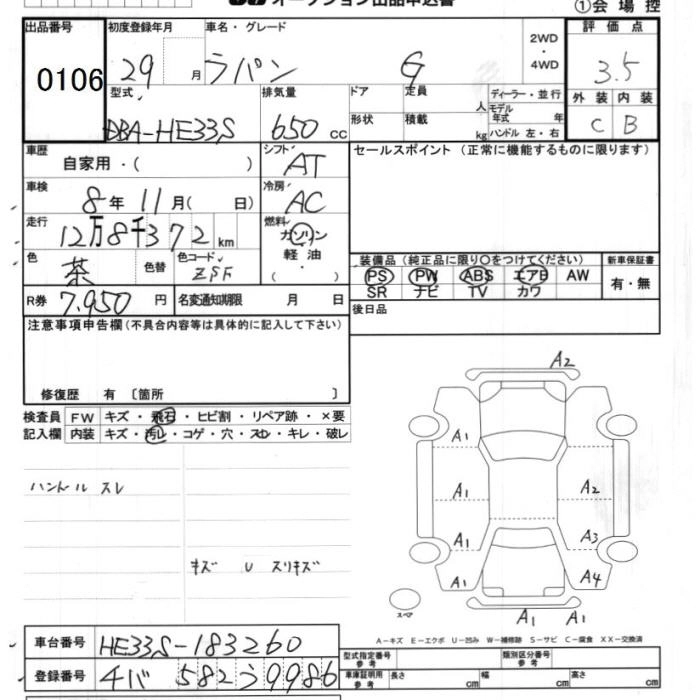 オークション出品申込書
①会場控
出品番号 0106
初度登録年月 29 月
車名・グレード ラパン G
2WD・4WD
評価点 3.5
型式 DBA-HE33S
排気量 650 cc
ドア 形状
定員 人
積載 kg
ディーラー・並行
モデル年式 年
ハンドル 左・右
外装 C
内装 B
車歴 自家用・( )
シフト AT
セールスポイント (正常に機能するものに限ります)
車検 8年 11月( 日)
冷房 AC
走行 12万8千372km
燃料 ガソリン・軽油・( )
色 茶 色替
色コード ZSF
装備品 (純正品に限り○をつけてください)
PS PW ABS エアB AW
SR ナビ TV カワ
新車保証書 有・無
R券 7.950円
名変通知期限 月 日
後日品
注意事項申告欄 (不具合内容等は具体的に記入して下さい)
修復歴 有 〔箇所 〕
検査員記入欄
FW キズ・飛石・ヒビ割・リペア跡・×要
内装 キズ・汚レ・コゲ・穴・スレ・キレ・破レ
ハンドル スレ
キズ U スリキズ
A2
A1
A1 A2
A1 A3
A1 A4
スペア
A1 A1
A-キズ E-エクボ U-凹み W-補修跡 S-サビ C-腐食 XX-交換済
車台番号 HE33S-183260
登録番号 582 う 9986
型式指定番号 参考
類別区分番号 参考
車庫証明用 参考 長さ cm 幅 cm 高さ cm